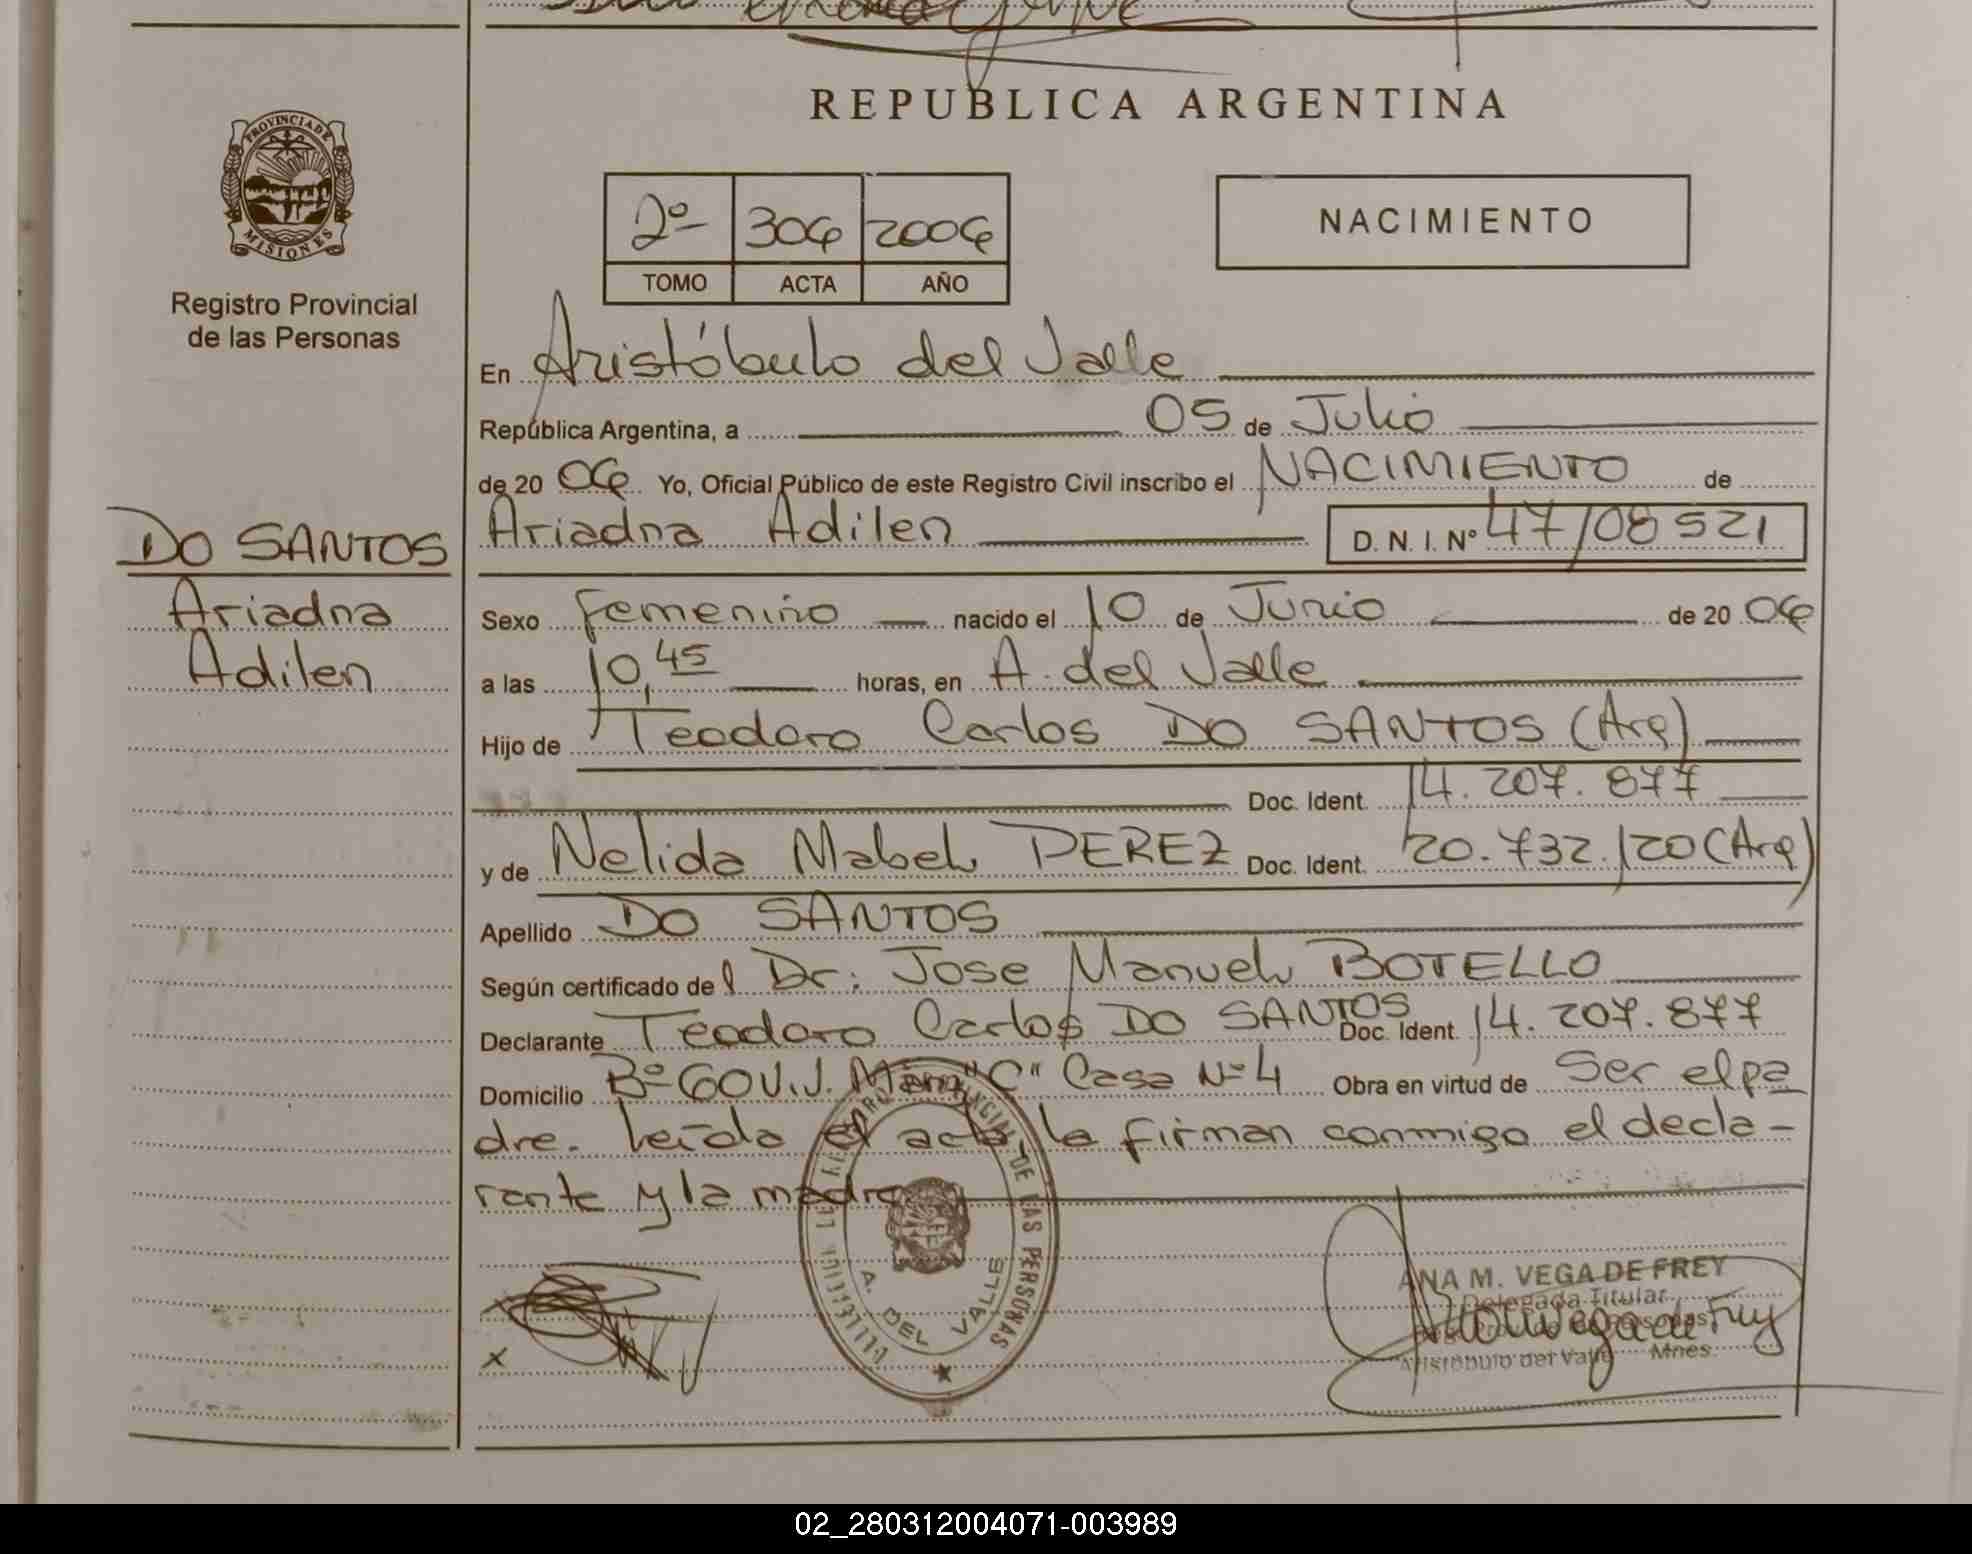 REPUBLICA ARGENTINA
PROVINCIA DE
MISIONES
Registro Provincial
de las Personas
2º 306 2006
TOMO ACTA AÑO
NACIMIENTO
En Aristóbulo del Valle
República Argentina, a 05 de Julio
de 20 06 Yo, Oficial Público de este Registro Civil inscribo el NACIMIENTO de
DO SANTOS
Ariadna
Adilen
Ariadna Adilen D. N. I. Nº 47/08 521
Sexo femenino nacido el 10 de Junio de 20 06
a las 10,45 horas, en A. del Valle
Hijo de Teodoro Carlos DO SANTOS (Arg)
Doc. Ident. 14.207.877
y de Nelida Mabel PEREZ Doc. Ident. 20.732.120 (Arg)
Apellido DO SANTOS
Según certificado del Dr. Jose Manuel BOTELLO
Declarante Teodoro Carlos DO SANTOS Doc. Ident. 14.207.877
Domicilio Bº GOV.J. Manz "C" Casa Nº 4 Obra en virtud de Ser el pa
dre. Leída el acta la firman conmigo el decla-
rante y la madre
DE LAS PERSONAS
A. DEL VALLE
x
ANA M. VEGA DE FREY
Delegada Titular
Aristóbulo del Valle Mnes.
02_280312004071-003989